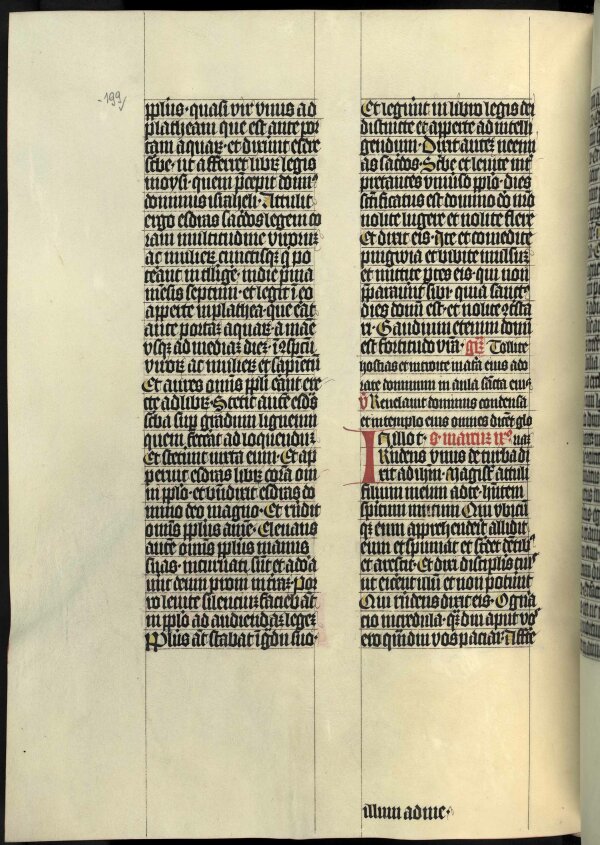 199
pplus · quasi vir vnus ad
plateam que est ante por
tam aquaꝝ · et dixerūt esdre
scbe · ut afferret librū legis
moysi · quem p̄cepit domi⁹
dominus israheli · Attulit
ergo esdras sac̄dos legem co
ram multitudine viroruꝝ
ac mulieꝝ cunctisqꝫ q̄ po
terant intellige · in die p̄ma
mēsis septimi · et legit ī eo
apperte in platea · que erāt
ante portaꝝ aquaꝝ · a mane
vsqꝫ ad mediaꝝ dieꝝ · ī ɔspectu
viroꝝ ac mulieꝝ et sapientū
Et aures omīs ppli erāt ere
cte ad libꝝ · Stetit autē esdrs
scba sup gradum ligneum
quem fecerat ad loquenduꝝ
Et steterunt iuxta eum · Et ap
peruit esdras librū corā om
ni pplo · et bn̄dixit esdras do
mino deo magno · Et rn̄dit
omīs pplus amē · Eleuans
autē omīs pplus manus
suas · incuruati sūt et adora
uerūt deum proni in trāꝝ · Por
ro leuite silenciuꝝ faciebāt
in pplo ad audiendaꝝ legeꝝ
Pplus at̄ stabat ī gdu suo ·
Et legerūt in libro legis dei
distincte et apperte ad intelli
gendum · Dixit auteꝝ neemi
as sac̄dos · Scbe et leuite int̄
pretantes vniuso pplo · dies
sc̄tificatus est domino deo nr̄o
nolite lugere et nolite flere
Et dixit eis · Ite et comedite
pingwia et bibite mulsuꝝ
et mittite ptes eis · qui non
pparauerūt sibi · quia sanct⁹
dies domī est · et nolite ɔtrista
ri · Gaudium etenim domī
est fortitudo vr̄a · gr̄ Tollite
hostias et introite in atria eius ado
rate dominum in aula sancta eiu⁹
v̄ Reuelauit dominus condensa
et in templo eius omnes dicēt glo
In illo t · s · martiꝝ ix° riaꝫ
Rndens vnus de turba di
xit ad ihm · Magist̄ attuli
filium meum ad te hn̄tem
spiritum mutum Qui vbicūqꝫ
qꝫ eum apprehenderit allidit
eum et spumat et stridet dentib⁹
et arescit · Et dixi disciplis tuis
ut eicerent illū et non potuerūt
Qui rn̄dens dixit eis · O gnera
tio incredula · qꝫdiu aput vos
ero qm̄diu vos paciar · Affer̄te
illum ad me ·